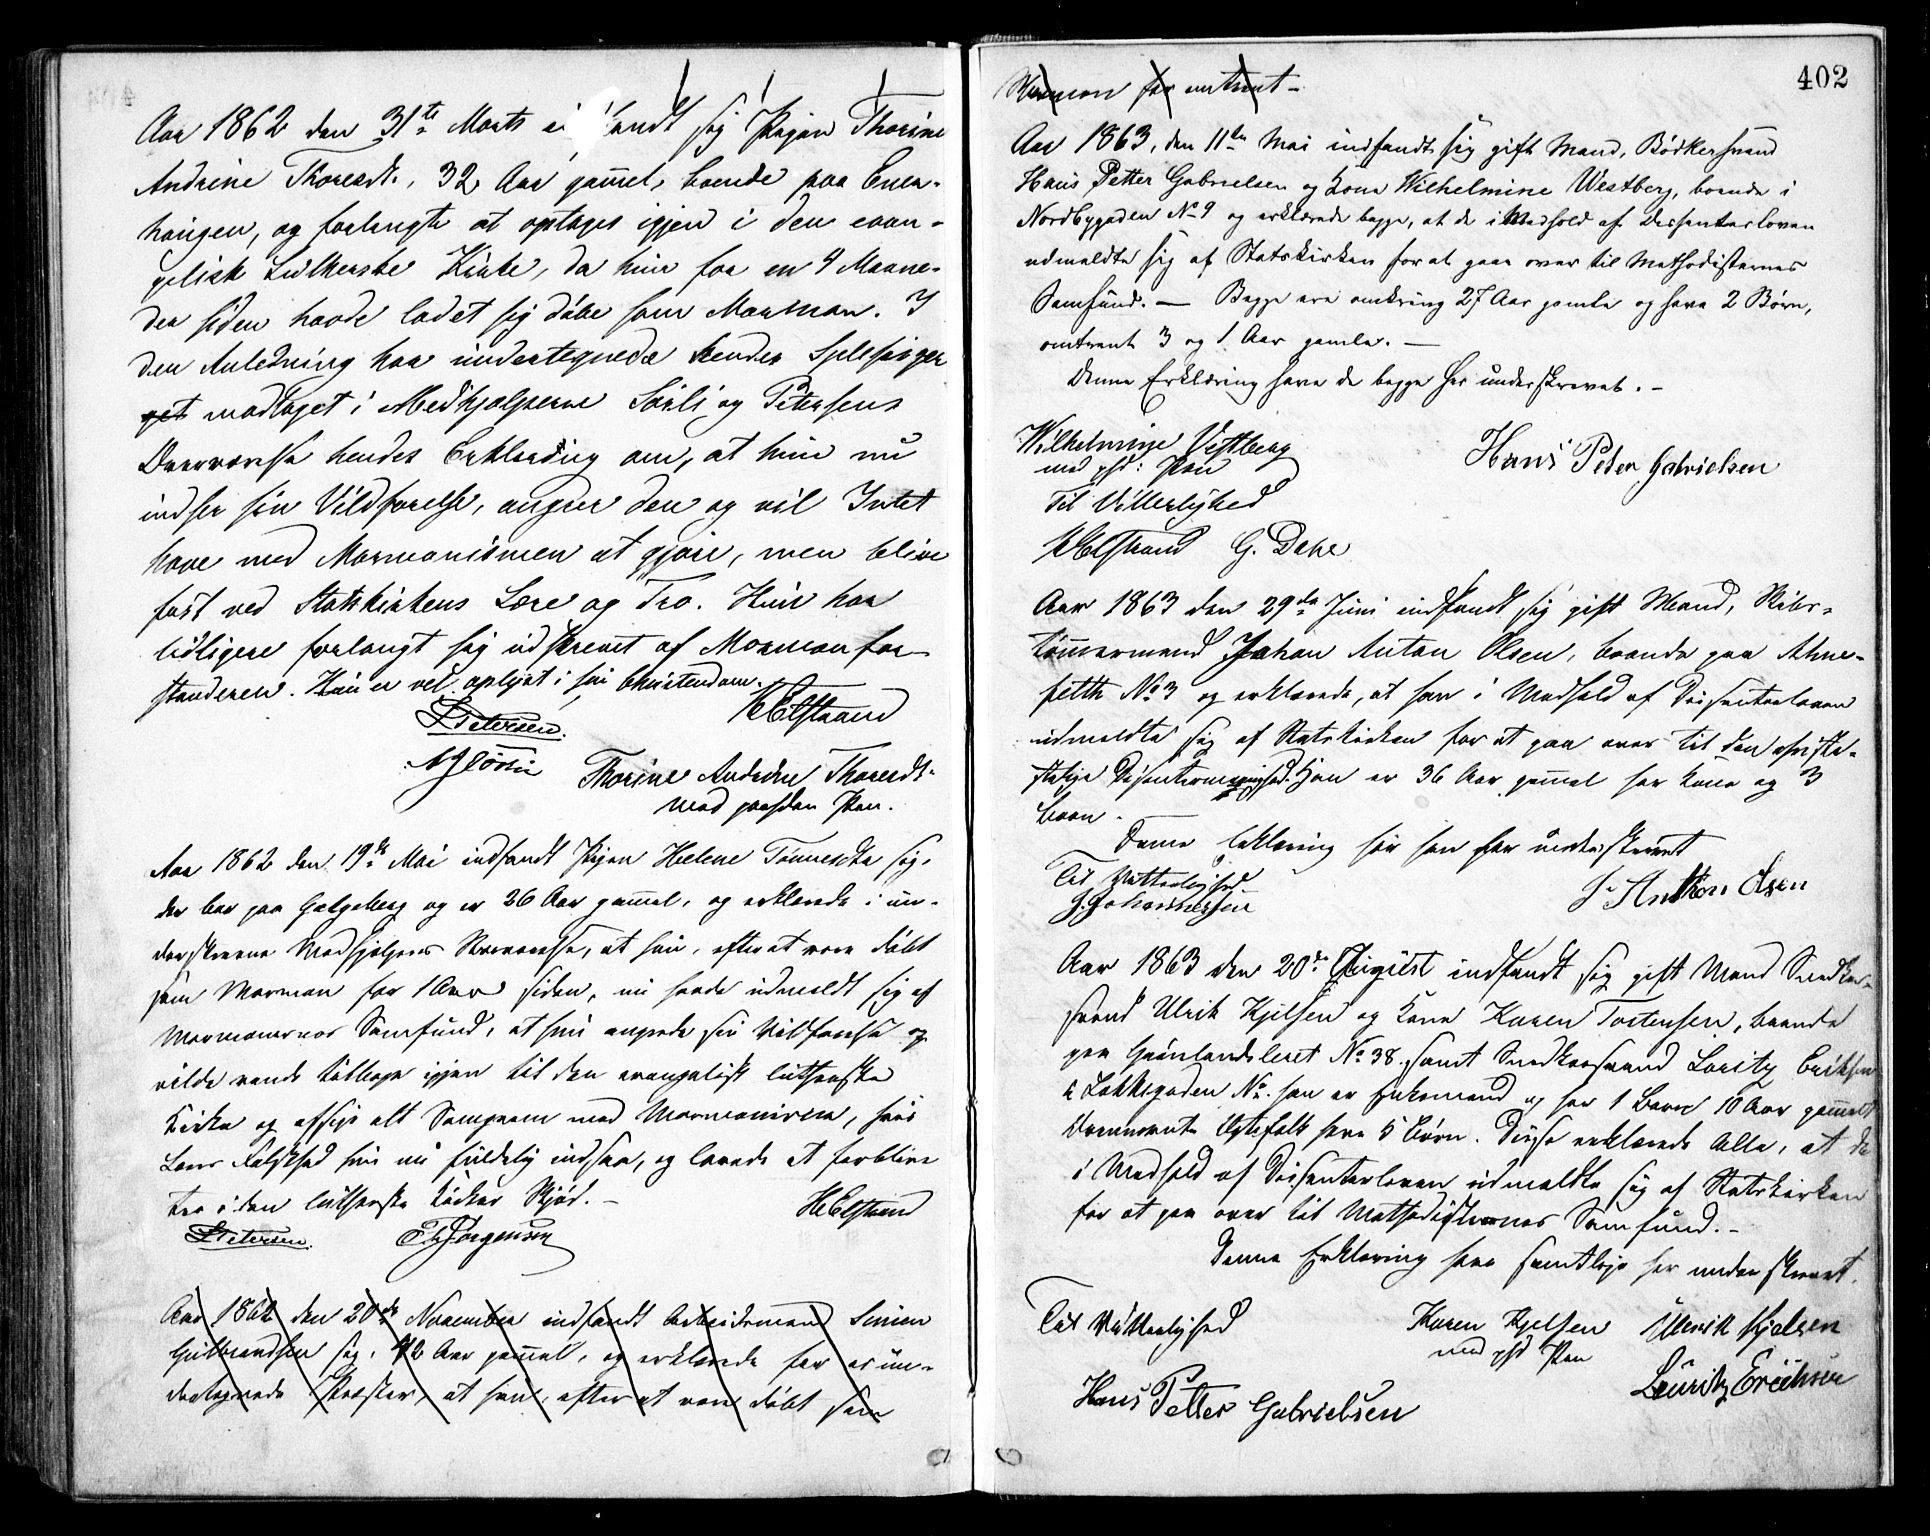 Aar 1862 den 31te Marts indfandt sig Pigen Thorine
Andrine Thoresdt., 32 Aar gammel, boende paa Ener-
haugen, og forlangte at optages igjen i den evan-
gelisk Lutherske Kirke, da hun for en 4 Maane-
der siden havde ladet sig døbe som Mormon. I
den Anledning har undertegnede hendes Sjelesørger
get modtaget i Medhjælperne Sørli og Petersens
Overværelse hendes Erklæring om, at hun nu
indser sin Vildfarelse, angrer den og vil Intet
have med Mormonismen at gjøre, men blive
fast ved Statskirkens Lære og Tro. Hun har
tidligere forlangt sig udskrevet af Mormonfor-
standeren. Hun er vel oplyst i sin Christendom.
L Petersen. H Elstrand
Thorine Andrine Thoresdt.
med paaholden Pen.
Aar 1862 den 19de Mai indfandt Pigen Helene Tønnesdtr sig,
der bor paa Galgeberg og er 26 Aar gammel, og erklærede i un-
derskrevne Medhjælperes Nærværelse, at hun, efterat være døbt
som Mormon for 1 Aar siden, nu havde udmeldt sig af
Mormonernes Samfund, at hun angrede sin Vildfarelse og
vilde vende tilbage igjen til den evangelisk lutherske
Kirke og afsige alt Samqvem med Mormonismen, hvis
Læres Falskhed hun nu fuldelig indsaa, og lovede at forblive
tro i den lutherske Kirkes Skjød. -
L Petersen. E Jørgensen H Elstrand
Aar 1862 den 20de November indfandt Arbeidsmand Simen
Gulbrandsen sig, 42 Aar gammel, og erklærede for os un-
dertegnede Præster, at han, efter at være døbt som
402
Mormon for omtrent -
Aar 1863, den 11te Mai indfandt sig gift Mand, Bødkersvend
Hans Petter Gabrielsen og Kone Wilhelmine Westberg, boende i
Nordbygaden No 9 og erklærede begge, at de i Medhold af Dissenterloven
udmeldte sig af Statskirken for at gaae over til Methodisternes
Samfund. — Begge ere omkring 27 Aar gamle og have 2 Børn,
omtrent 3 og 1 Aar gamle. —
Denne Erklæring have de begge her underskrevet. -
Wilhelmine Vestberg Hans Peter Gabrielsen
med phd: Pen
Til Vitterlighed
H Elstrand G. Dehe
Aar 1863 den 29de Juni indfandt sig gift Mand, Skibs-
tømmermand Johan Anton Olsen, boende paa
No 3 og erklærede, at han i Medhold af Dissenterloven
udmeldte sig af Statskirken for at gaa over til den christe-
lige Dissentermenighed. Han er 36 Aar gammel har Kone og 3
Børn.
Denne Erklæring har han her underskrevet
Til Vitterlighed
J. Johannessen J. Anthon Olsen
Aar 1863 den 20de August indfandt sig gift Mand Snedker-
svend Ulrik Kjelsen og Kone Karen Tostensen, boende
paa Grønlandsleret No 38. samt Snedkersvend Loritz Eriksen
i Lakkegaden No. han er Enkemand og har 1 Barn 10 Aar gammelt
Ægtefolk have 5 Børn. Disse erklærede Alle, at de
i Medhold af Dissenterloven udmeldte sig af Statskirken
for at gaa over til Methodisternes Samfund. -
Denne Erklæring have samtlige her underskrevet.
Til Vitterlighed Karen Kjelsen Ullerik Kjelsen
med phd Pen
Hans Petter Gabrielsen Lauritz Erichsen